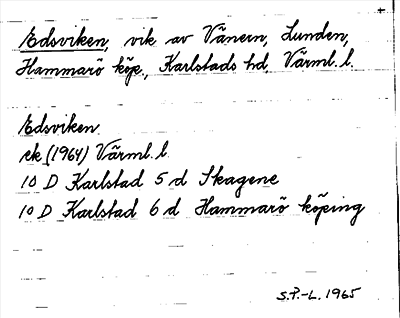 Edsviken, vik av Vänern, Lunden,
Hammarö köp., Karlstads hd, Värml. l.
Edsviken
ek (1964) Värml. l.
10 D Karlstad 5 d Skagene
10 D Karlstad 6 d Hammarö köping
S.P.-L. 1965